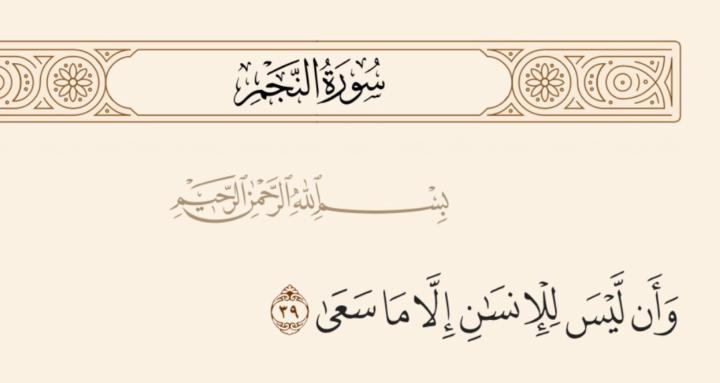 سُورَةُ النَّجْمِ
بِسْمِ اللَّهِ الرَّحْمَٰنِ الرَّحِيمِ
وَأَن لَّيْسَ لِلْإِنسَٰنِ إِلَّا مَا سَعَىٰ ٣٩